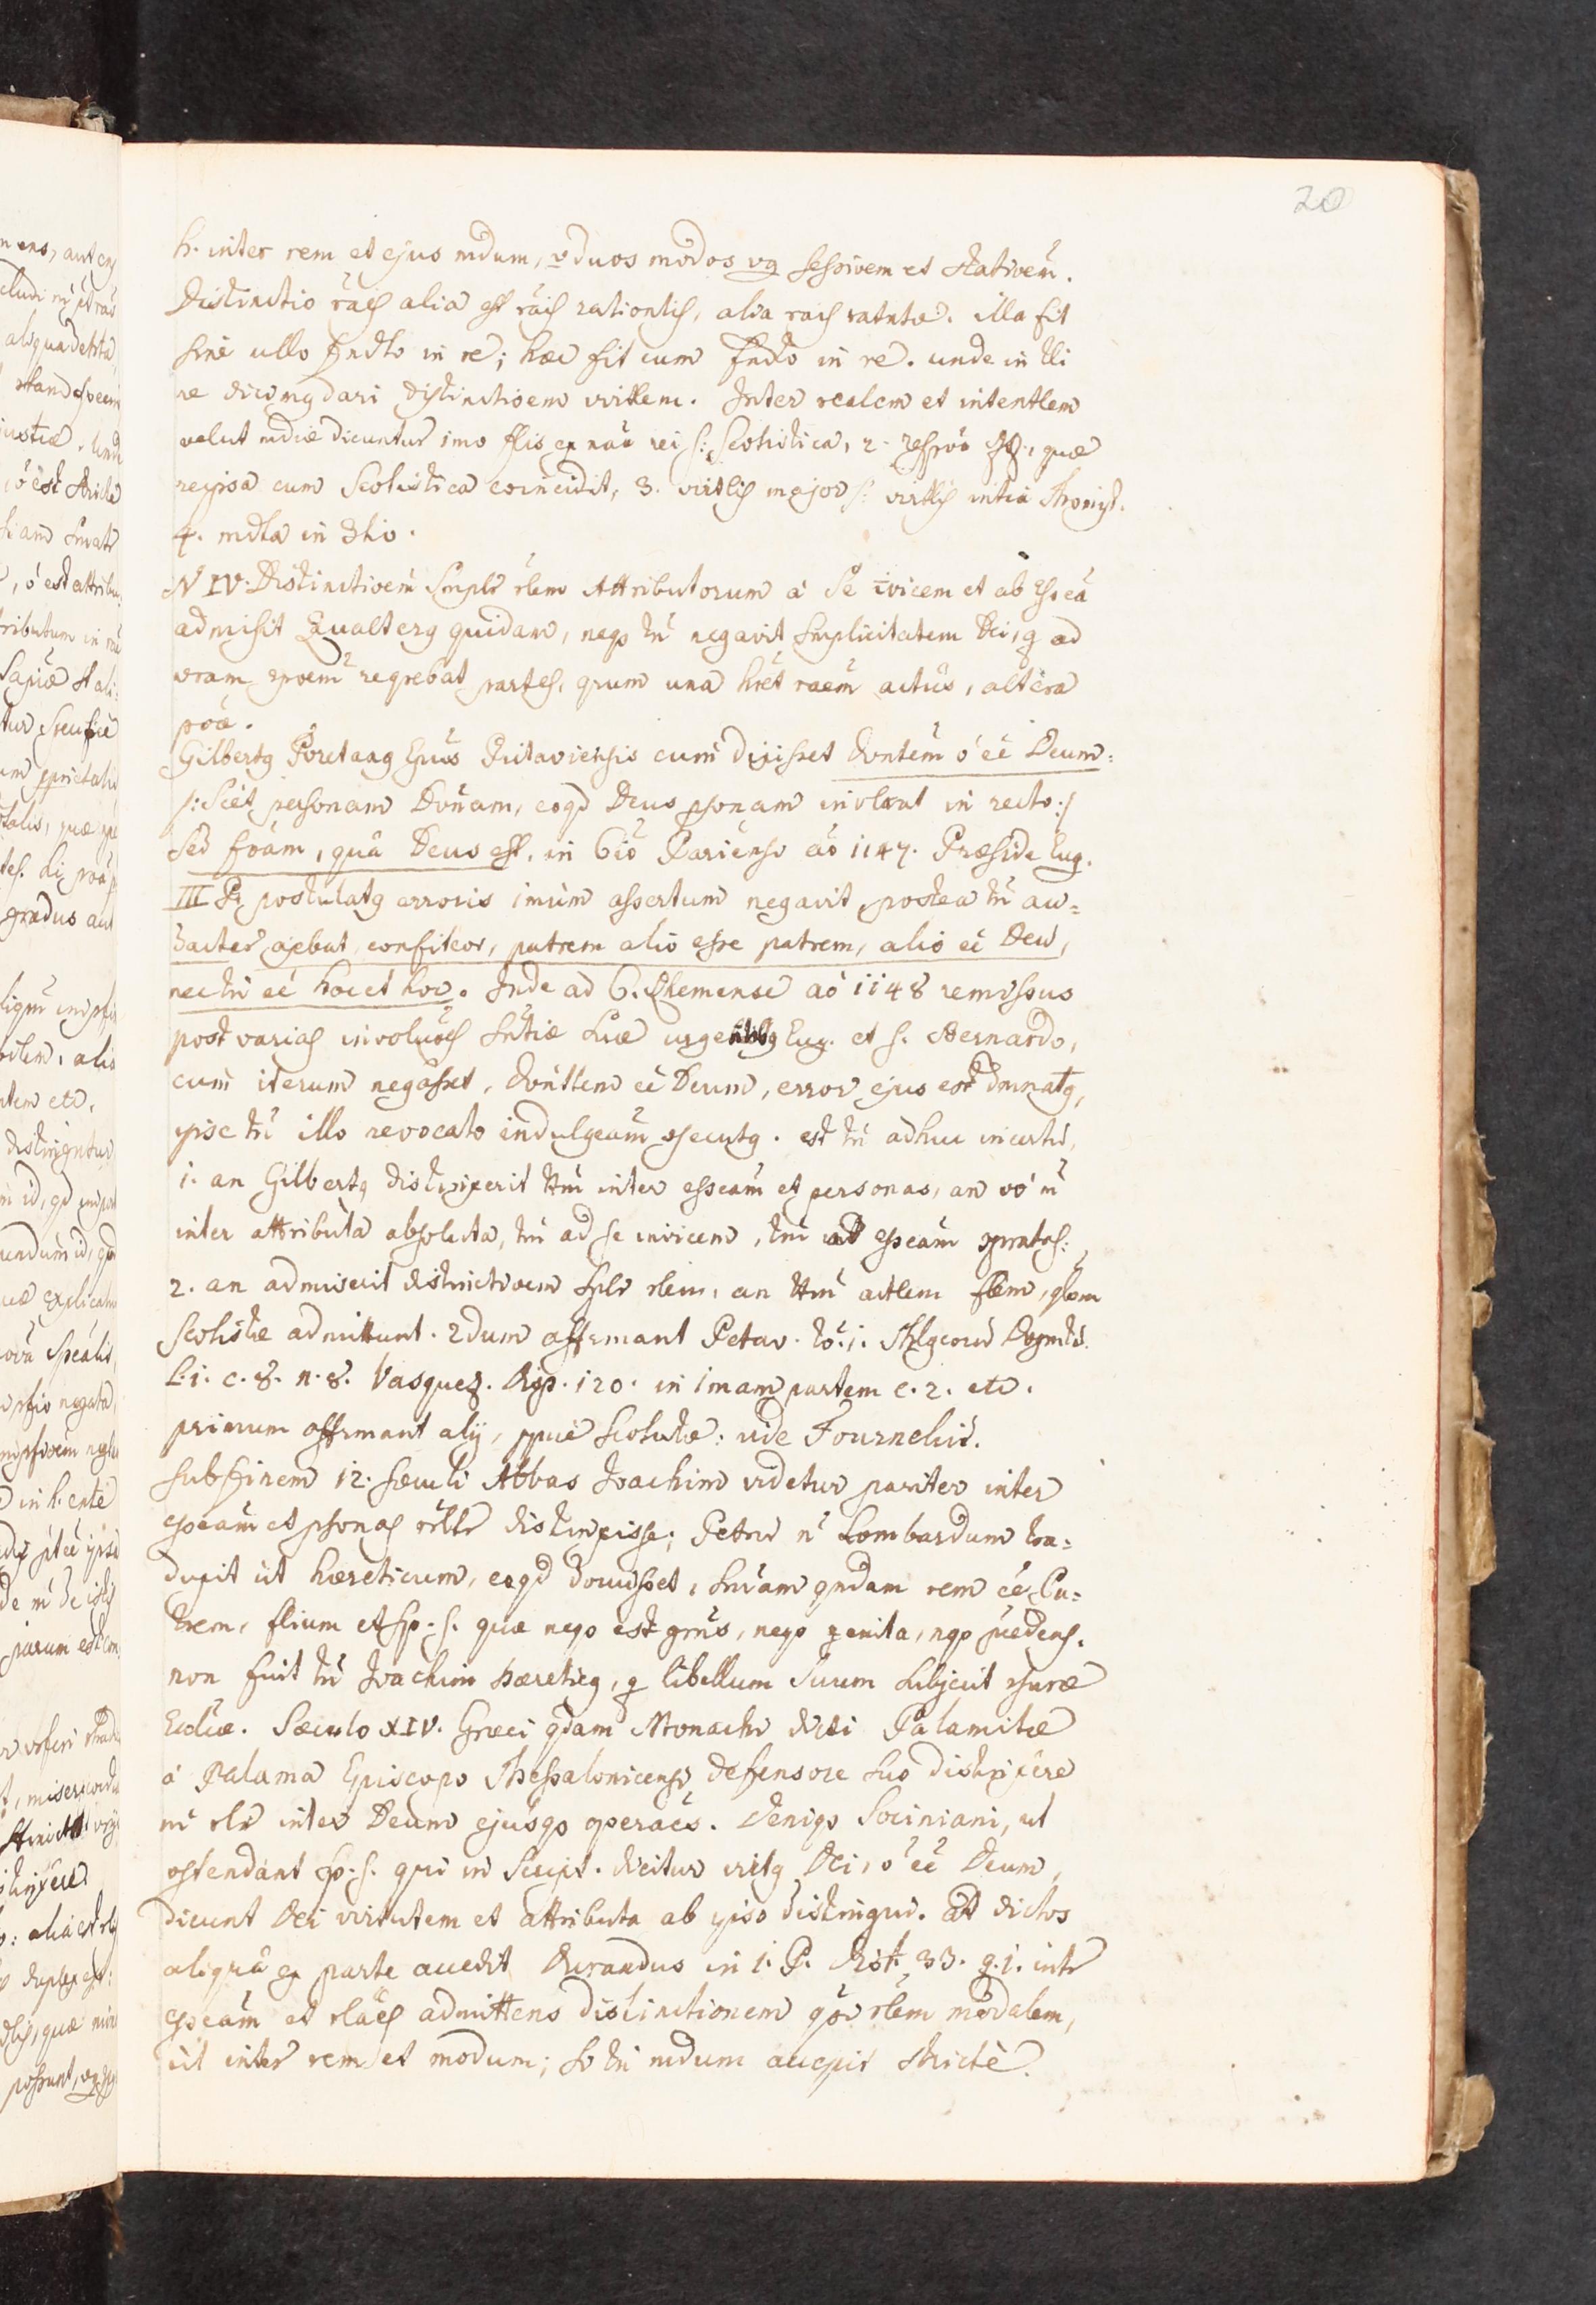 20
h. inter rem et ejus mdum, v duos modos vg sessioem et stationem.
Distinctio rãis alia est rãis rationtis, alia rais ratntæ. illa fit
sine ullo fndto in re; hæc fit cum fndto in re. unde in tli
re dicimg dari distinctioem virtlem. Inter realem et intentlem
velut mdiæ dicuntur imo flis ex nãa rei s: Scotistica, 2. quæ
reipsa cum Scotistica coincidit, 3. virtlis major s: virtlis intia Thomist.
4. mdta in
N IV. Distinctioem Smplr rlem Attributorum à Se ivicem et ab esseã
admisit Gualterg quidam, neqe tñ negavit Smplicitatem Dei, q ad
veram reqrebat partes, qrum una hret raem actûs, altera
poæ.
Gilbertg Poretang Epũs Pictaviensis cum dixisset dvntem ó eé Deum:
/: Sciet personam Dvnam, eoqd Deus psonam involvat in recto :/
Sed foãm, quâ Deus est, in Cio Pariensi aõ 1147. Præside Eug.
III P. postulatg erroris imum assertum negavit, postea tñ au=
dacter ajebat confiteor, patrem alio esse patrem, alio eé Deũ,
nec tñ eé hoc et hoc. Inde ad C. Rhemense aõ 1148 remissus
post varias involuões Sntiæ suæ urgentibg Eug. et S. Bernardo,
cum iterum negâsset, dvntlem eé Deum, error ejus est dmnatg,
ipse tñ illo revocato indulgeam csecutg. est tñ adhuc incertũ,
1. an Gilbertg distinxerit ttm inter esseam et personas, an vó m
inter attributa absoluta, tm ad se invicem, tm ad esseam
2. an admiserit distinctioem Splr rlem, an ttm actlem flem, qlem
Scotistæ admittunt. 2dum affrmant Petav. to. 1. Thlgcorũ Dogmtũ.
L. 1. c. 8. n. 8. Vasquez. Disp. 120. in 1mam partem c. 2. etc.
primum affrmant alij, ppuè Scotistæ: vide Tournelũ.
sub finem 12. sæculi Abbas Joachim videtur pariter inter
esseam et psonas rllr distinxisse; Petrũ n Lombardum tra=
duxit ut hæreticum, eoqd docuisset, Smam qndam rem eé Pa=
trem, filium et Sp. S. quæ neqe est gnns, neqe genita, nqe pcedens.
non fuit tñ Joachim hæreticg, q libellum suum Subjecit csuræ
Eccliæ. Sæculo XIV. Græci qdam Monachi dicti Palamitæ
à Palama Episcopo Thessalonicensi, defensore suo distinxêre
m rlr inter Deum ejusqe operaẽs. Deniqe Sociniani, ut
ostendant Sp. S. qui in Script. dicitur virtg Dei, ó eé Deum,
dicunt Dei virtutem et attributa ab ipso distingui. Ad dictos
aliqua ex parte accedit Durandus in 1. P. dist. 33. q. 1. intr
esseam et rlaẽs admittens distinctionem qõv rlem modalem,
ut inter rem et modum; so tñ mdum accepit strictè.